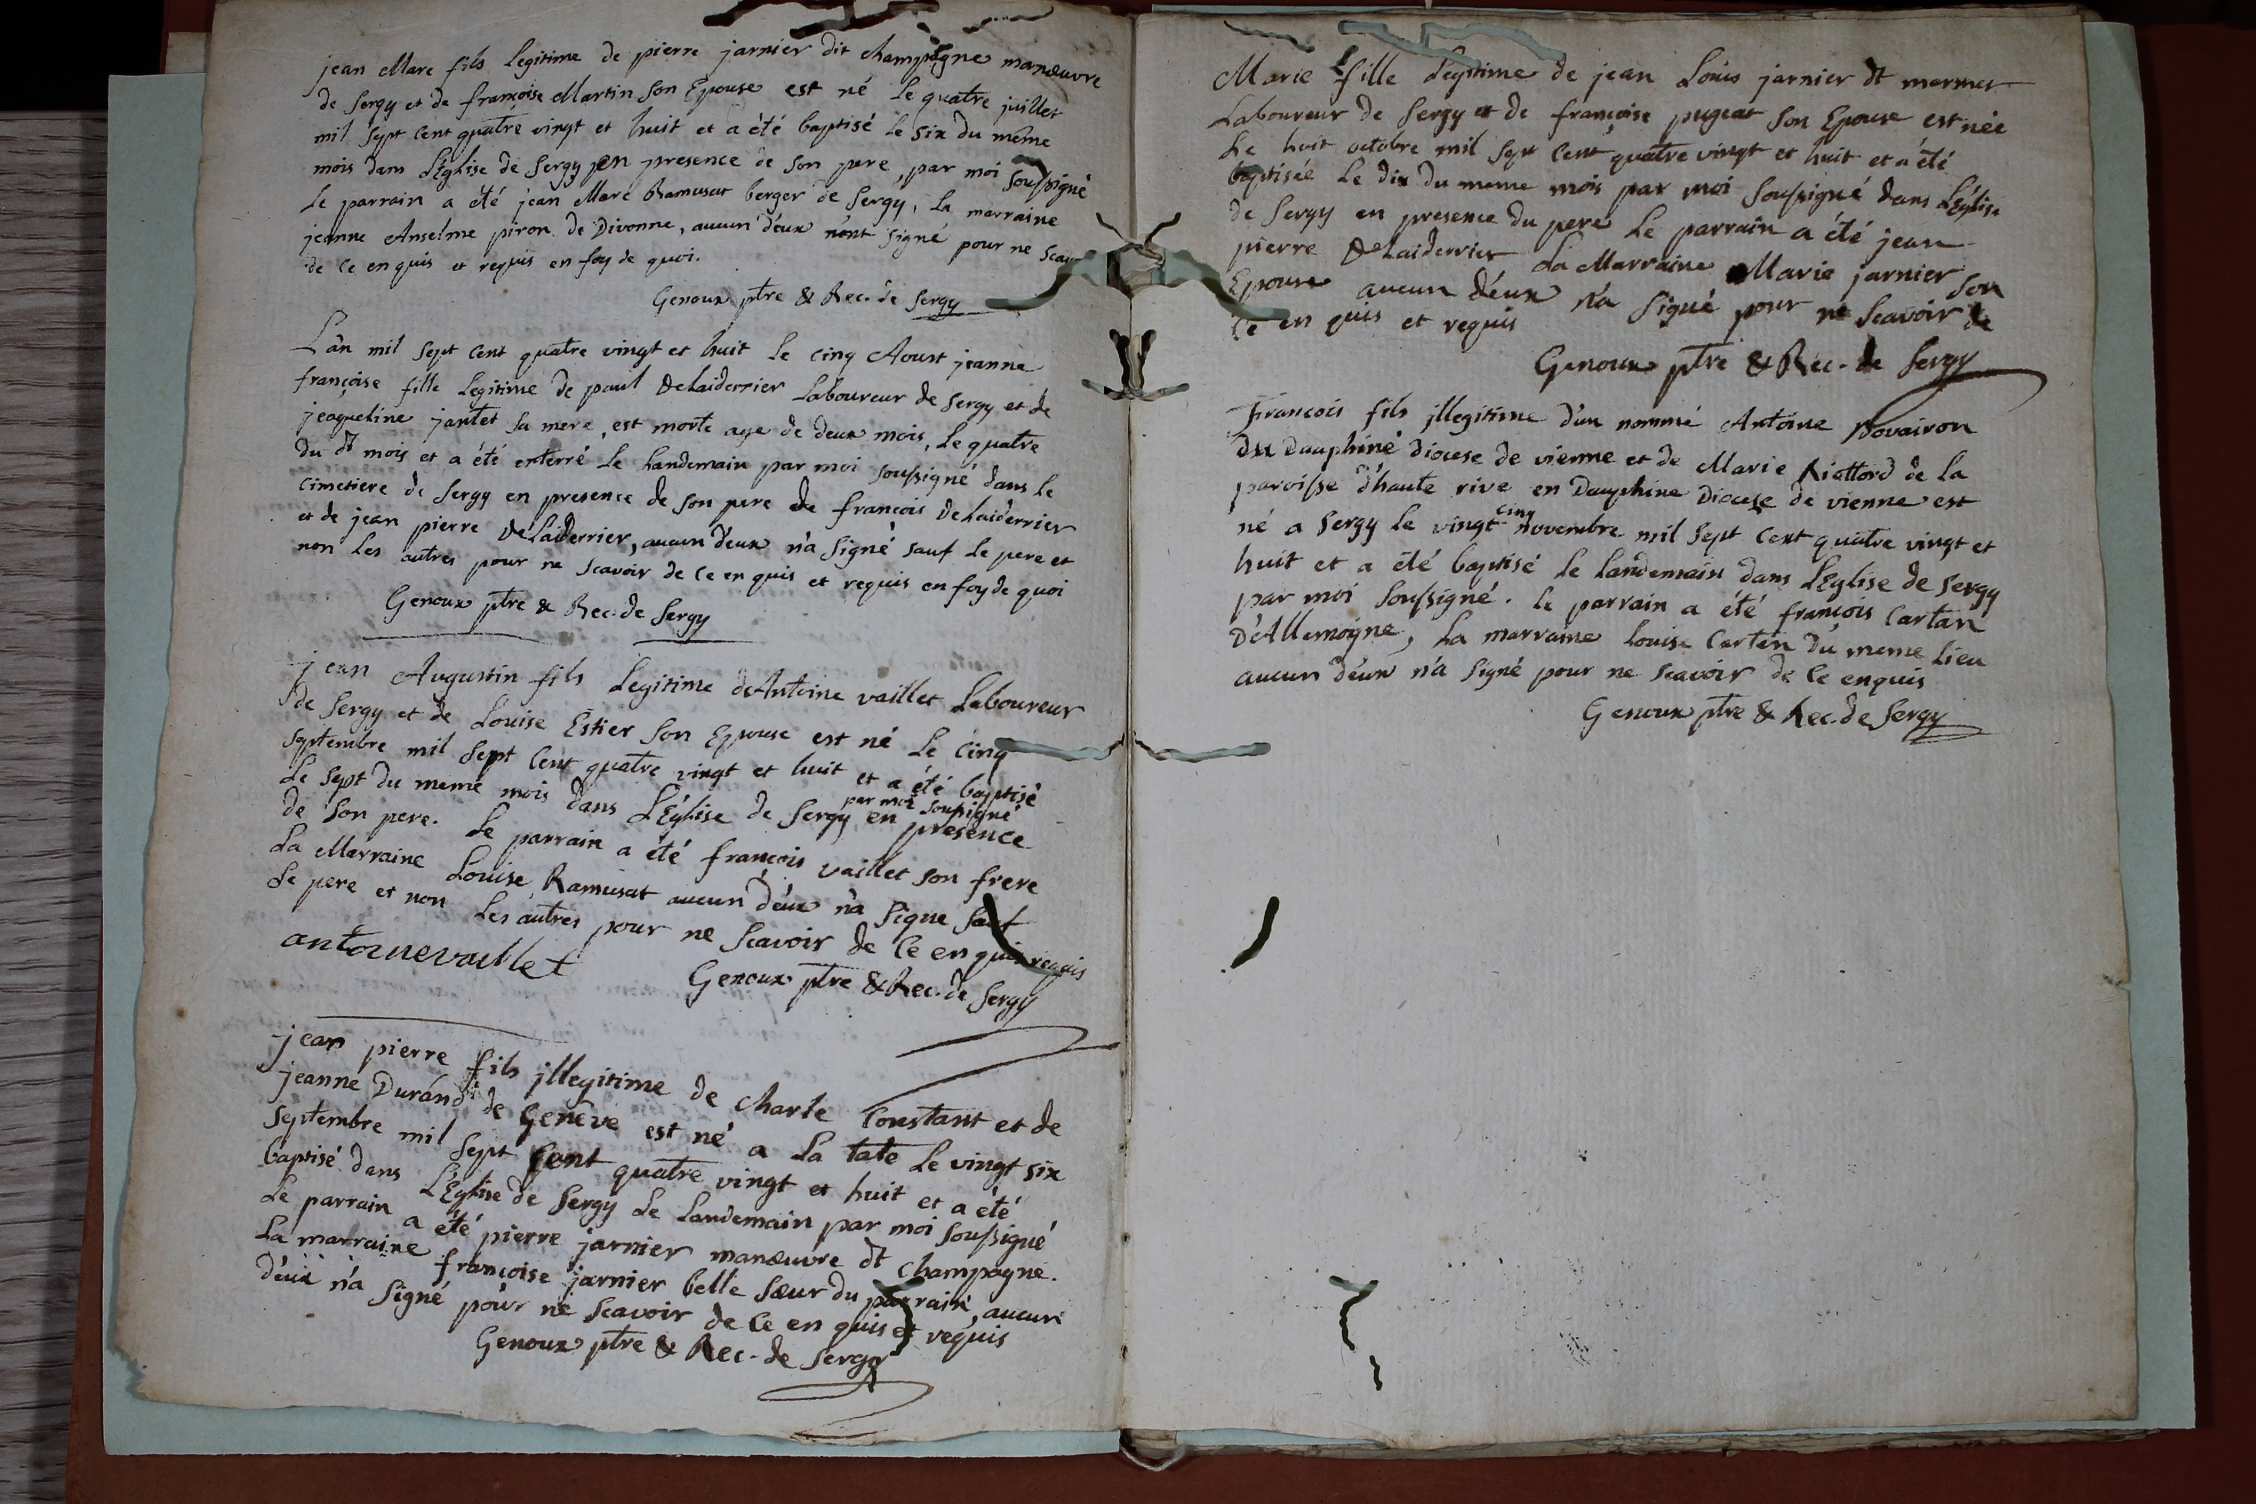 jean Marc fils legitime de pierre jarnier dit champagne manœuvre
de Sergy et de françoise Martin son Epouse est né le quatre juillet
mil sept cent quatre vingt et huit et a été baptisé le six du même
mois dans L'Eglise de Sergy en presence de son pere, par moi soussigné
Le parrain a été jean Marc Ramusat berger de Sergy, la marraine
jeanne Anselme piron de Divonne, aucun d'eux n'ont signé pour ne
de ce enquis et requis en foy de quoi.
Genoux ptre & Rec. de Sergy
L'an mil sept cent quatre vingt et huit le cinq Aoust jeanne
françoise fille legitime de paul Delaiderrier Laboureur de Sergy et de
jeaqueline jantet sa mere, est morte age de deux mois, le quatre
du dt mois et a été enterré le landemain par moi soussigné dans le
cimetiere de Sergy en presence de son pere de francois Delaiderrier
et de jean pierre DeLaiderrier, aucun d'eux n'a signé sauf le pere et
non les autres pour ne scavoir de ce en quis et requis en foy de quoi
Genoux ptre & Rec. de Sergy
jean Augustin fils Legitime de Antoine vaillet Laboureur
de Sergy et de Louise Estier son Epouse est né le cinq
septembre mil sept cent quatre vingt et huit et a été baptisé
le sept du meme mois dans L'Eglise de Sergy par moi soussigné en presence
de son pere. Le parrain a été françois vaillet son frere
La Marraine Louise Ramusat aucun d'eux n'a signe sauf
Le pere et non les autres pour ne scavoir de ce en quis requis
antoinevaillet
Genoux ptre & Rec. de Sergy
jean pierre fils jllegitime de charle Constant et de
jeanne Durand de Geneve est né a La tate le vingt six
septembre mil sept cent quatre vingt et huit et a été
baptisé dans L'Eglise de Sergy le landemain par moi soussigné
Le parrain a été pierre jarnier manœuvre dt champagne.
La marraine françoise jarnier belle sœur du parrain, aucun
d'eux n'a signé pour ne scavoir de ce en quis et requis
Genoux ptre & Rec. de Sergy
Marie fille Legitime de jean Louis jarnier dt mermet
Laboureur de Sergy et de françoise pugeat son Epouse est née
Le huit octobre mil sept cent quatre vingt et huit et a été
baptisée le dix du meme mois par moi soussigné dans L'Eglise
de Sergy en presence du pere le parrain a été jean
pierre Delaiderrier La Marraine Marie jarnier son
Epouse aucun d'eux n'a signé pour ne scavoir de
ce en quis et requis
Genoux ptre & Rec. de Sergy
Francois fils jllegitime d'un nommé Antoine Bovairon
du Dauphiné Diocese de vienne et de Marie Riettord de la
paroisse d'haute rive en Dauphine Diocese de vienne est
né a Sergy le vingt cinq novembre mil sept cent quatre vingt et
huit et a été baptisé le landemain dans L'Eglise de Sergy
par moi soussigné. le parrain a été francois Cartan
D'Allemogne, La marraine Louise Cartan du meme lieu
aucun d'eux n'a signé pour ne scavoir de ce enquis
Genoux ptre & Rec. de Sergy